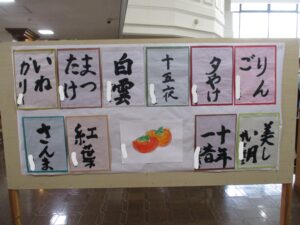 りん
ご
夕やけ
十五夜
白雲
まつ
たけ
いね
かり
美し
い朝
十年
一昔
紅葉
さんま